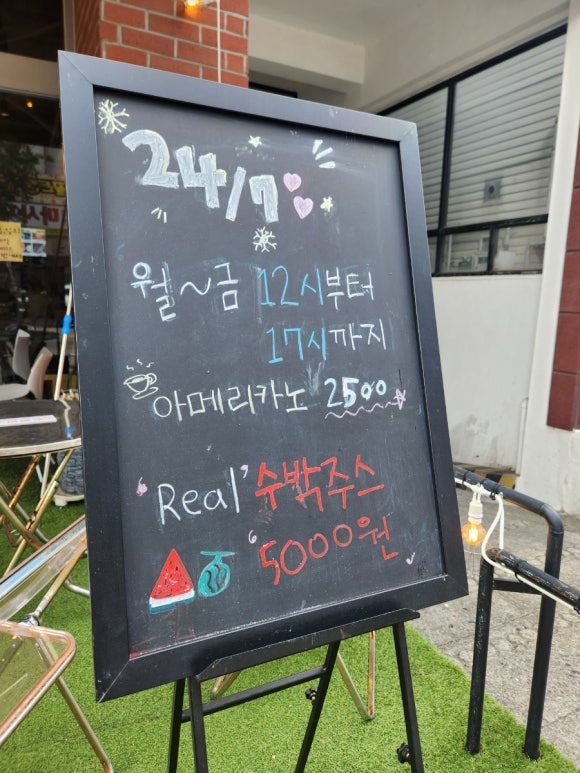 24/7
월~금 12시부터
17시까지
아메리카노 2500
'Real' 수박주스
'5000원